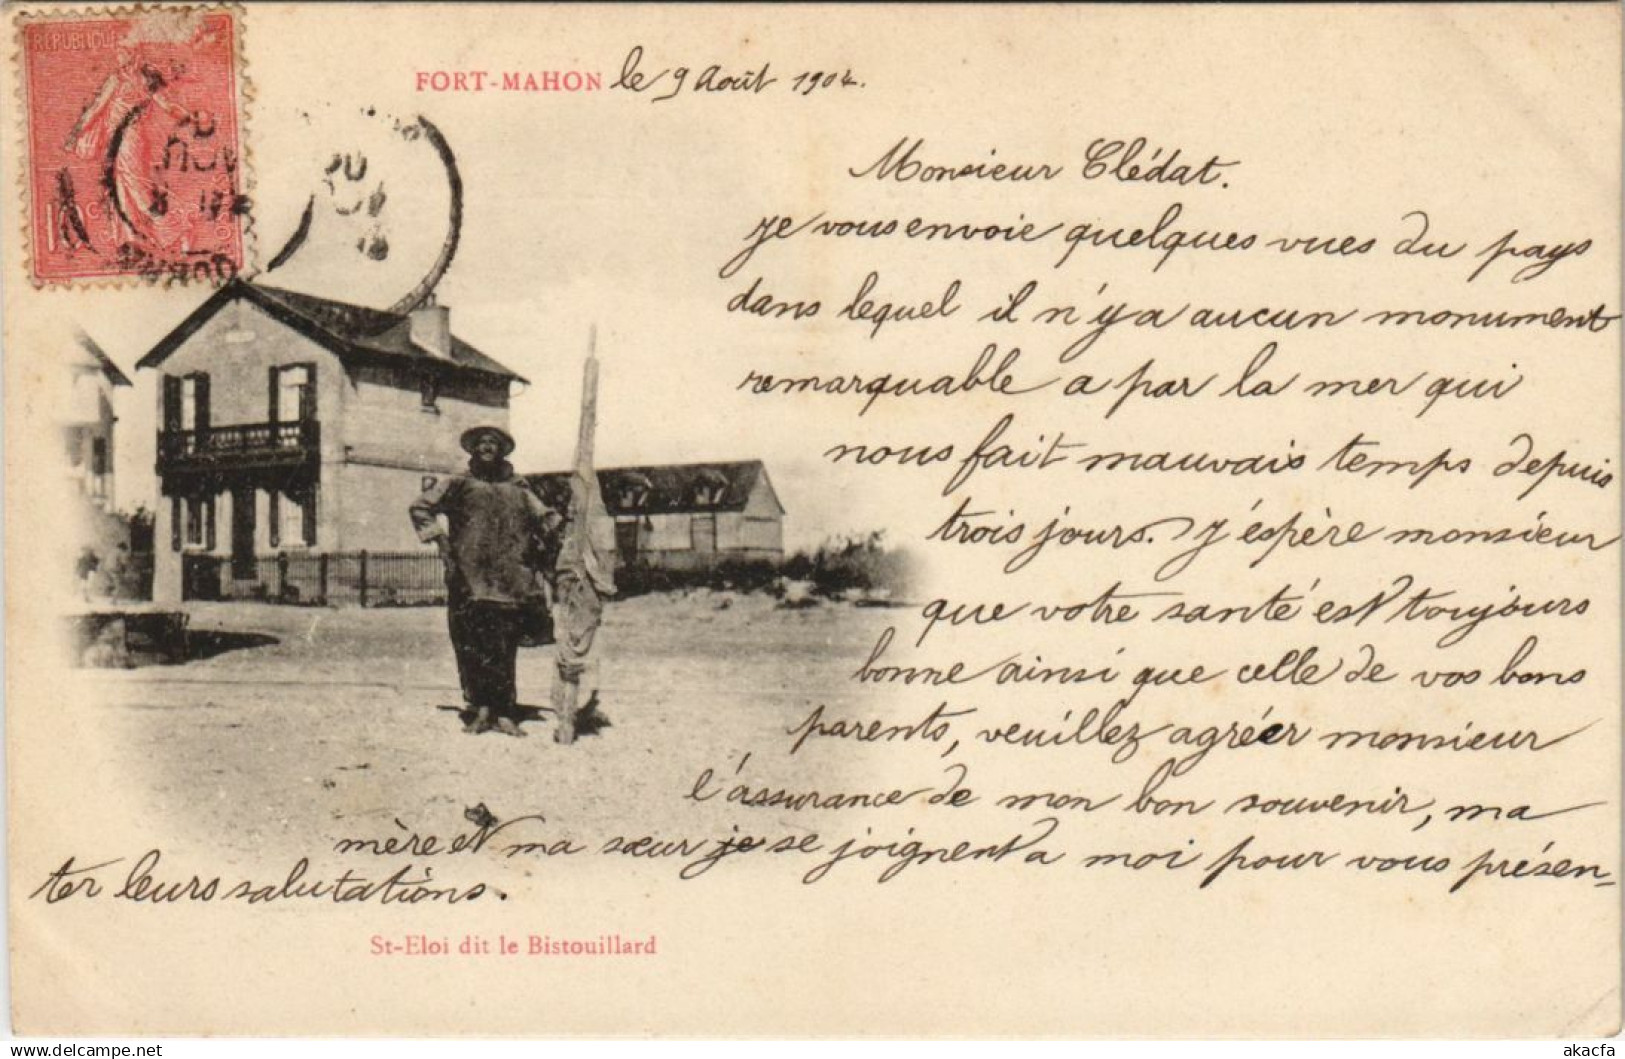 RÉPUBLIQUE
10
FORT-MAHON le 9 Août 1904.
Monsieur Clédat.
je vous envoie quelques vues du pays
dans lequel il n'y a aucun monument
remarquable a par la mer qui
nous fait mauvais temps depuis
trois jours. J'éspère monsieur
que votre santé est toujours
bonne ainsi que celle de vos bons
parents, veuillez agréer monsieur
l'assurance de mon bon souvenir, ma
mère et ma sœur je se joignent a moi pour vous présen-
ter leurs salutations.
St-Eloi dit le Bistouillard
akacfa